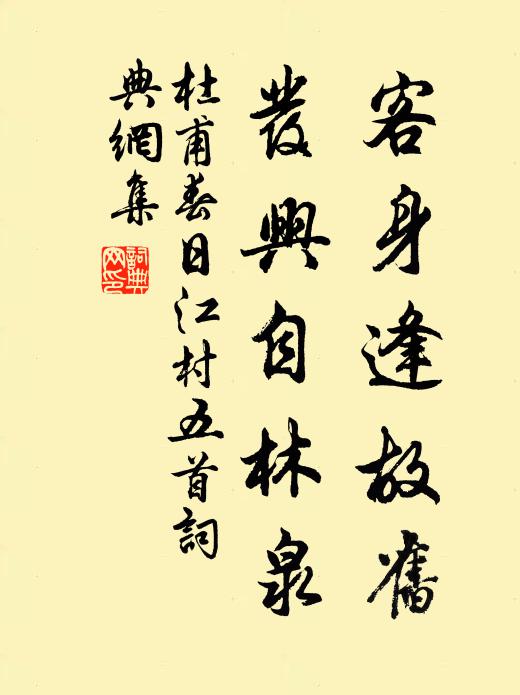 客身逢故舊
發興自林泉
杜甫春日江村五首詞
典網集
詞典
網印